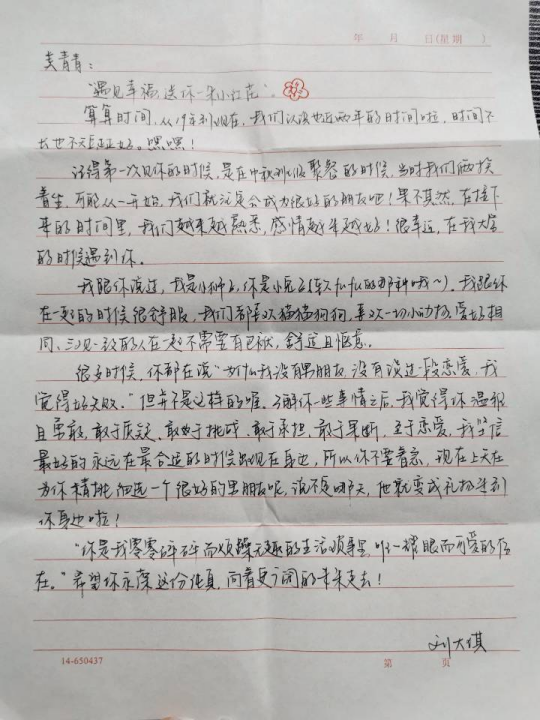 年 月 日(星期 )
青青：
"遇见幸福，送你一朵小红花"。
算算时间，从19年到现在，我们认识也近两年的时间啦，时间不
长也不短正正好。嘿嘿！
记得第一次见你的时候，是在中秋 聚餐的时候，当时我们俩挨
着坐，可能从一开始，我们就注定会成为很好的朋友吧！果不其然，在接下
来的时间里，我们越来越熟悉，感情越来越好！很幸运，在我大学
的时候遇到你。
我跟你说过，我是小神，你是小 (软fufu的那种哦～)。我跟你
在一起的时候很舒服，我们都喜欢猫猫狗狗，喜欢一切小动物，爱好相
同、三观一致的人在一起不需要有包袱，舒适且惬意。
很多时候，你都在说"为什么我没有男朋友，没有谈过一段恋爱，我
觉得好失败。"但并不是这样的喔，了解你一些事情之后，我觉得你温柔
且勇敢，敢于质疑、敢于挑战、敢于承担、敢于果断，至于恋爱，我坚信
最好的永远在最合适的时候出现在身边，所以你不要着急，现在上天在
为你精挑细选一个很好的男朋友呢，说不定哪天，他就变成礼物来到
你身边啦！
"你是我零零碎碎而烦躁无趣的生活琐事里，唯一耀眼而可爱的存
在。"希望你永葆这份纯真，向着更广阔的未来走去！
刘大琪
14-650437 第 页